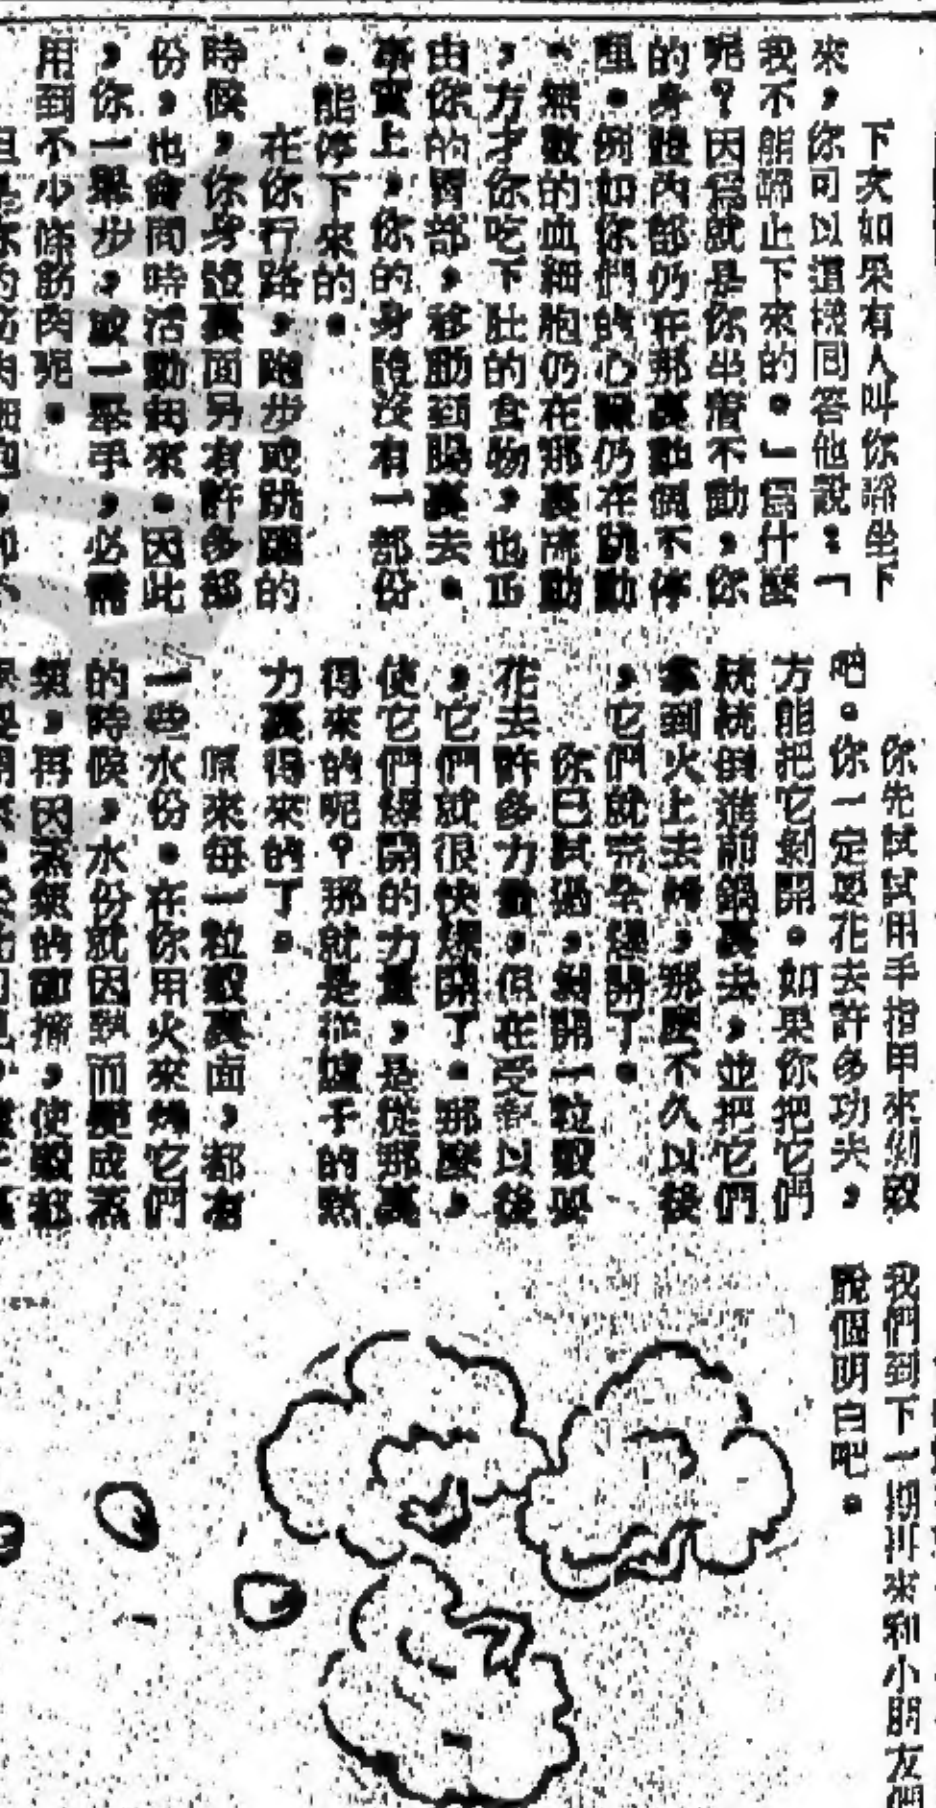 下次如果有人叫你請坐下
來，你可以這樣回答他說：「
我不能歸止下來的。」爲什麼
呢？因爲就是你坐着不動，你
的身體內部仍在那裏動個不停
哩。例如你們的心臟仍在跳動
，無數的血細胞仍在那裏流動
，方才你吃下肚的食物，也正
由你的胃部，移動到腸裏去。
事實上，你的身體沒有一部份
能停下來的。
在你行路，跑步或跳躍的
時候，你身體裏面另有許多部
份，也會同時活動起來。因此
，你一舉步，或一舉手，必需
用到不少條筋肉呢。
你先試試用手指甲來剝穀
吧。你一定要花去許多功夫，
方能把它剝開。如果你把它們
統統倒進前鍋裏去，並把它們
拿到火上去烤，那麼不久以後
，它們就完全爆開了。
你已試過，剝開一粒穀要
花去許多力量，但在受熱以後
，它們就很快爆開了。那麼，
使它們爆開的力量，是從那裏
得來的呢？那就是從爐子的熱
力裏得來的了。
原來每一粒穀裏面，都有
一些水份。在你用火來烤它們
的時候，水份就因熱而變成蒸
氣，再因蒸氣的膨脹，使穀都
我們到下一期再來和小朋友們
說個明白吧。